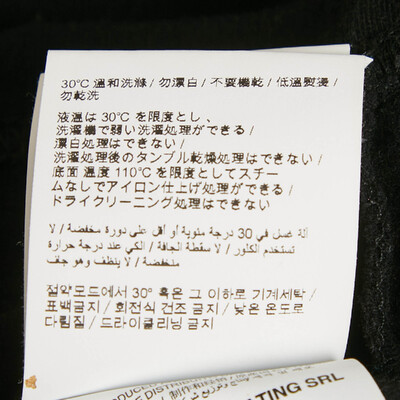 30°C 溫和洗滌 / 勿漂白 / 不要機乾 / 低溫熨燙 /
勿乾洗
液温は 30°C を限度とし、
洗濯機で弱い洗濯処理ができる /
漂白処理はできない /
洗濯処理後のタンブル乾燥処理はできない /
底面 温度 110°C を限度としてスチー
ムなしでアイロン仕上げ処理ができる /
ドライクリーニング処理はできない
آلة غسل في 30 درجة مئوية أو أقل على دورة مخفضة / لا
تستخدم الكلور / لا سقطة الجافة / الكي عند درجة حرارة
منخفضة / لا ينظف وهو جاف
절약모드에서 30° 혹은 그 이하로 기계세탁 /
표백금지 / 회전식 건조 금지 / 낮은 온도로
다림질 / 드라이클리닝 금지
TING SRL